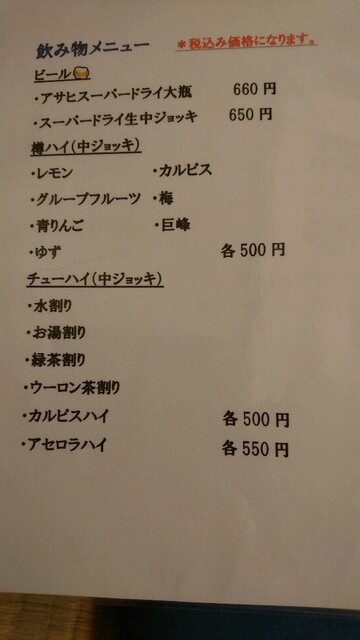 飲み物メニュー ＊税込み価格になります。
ビール🍻
・アサヒスーパードライ大瓶 660 円
・スーパードライ生中ジョッキ 650 円
樽ハイ(中ジョッキ)
・レモン ・カルピス
・グルーブフルーツ ・梅
・青りんご ・巨峰
・ゆず 各 500 円
チューハイ(中ジョッキ)
・水割り
・お湯割り
・緑茶割り
・ウーロン茶割り
・カルピスハイ 各 500 円
・アセロラハイ 各 550 円